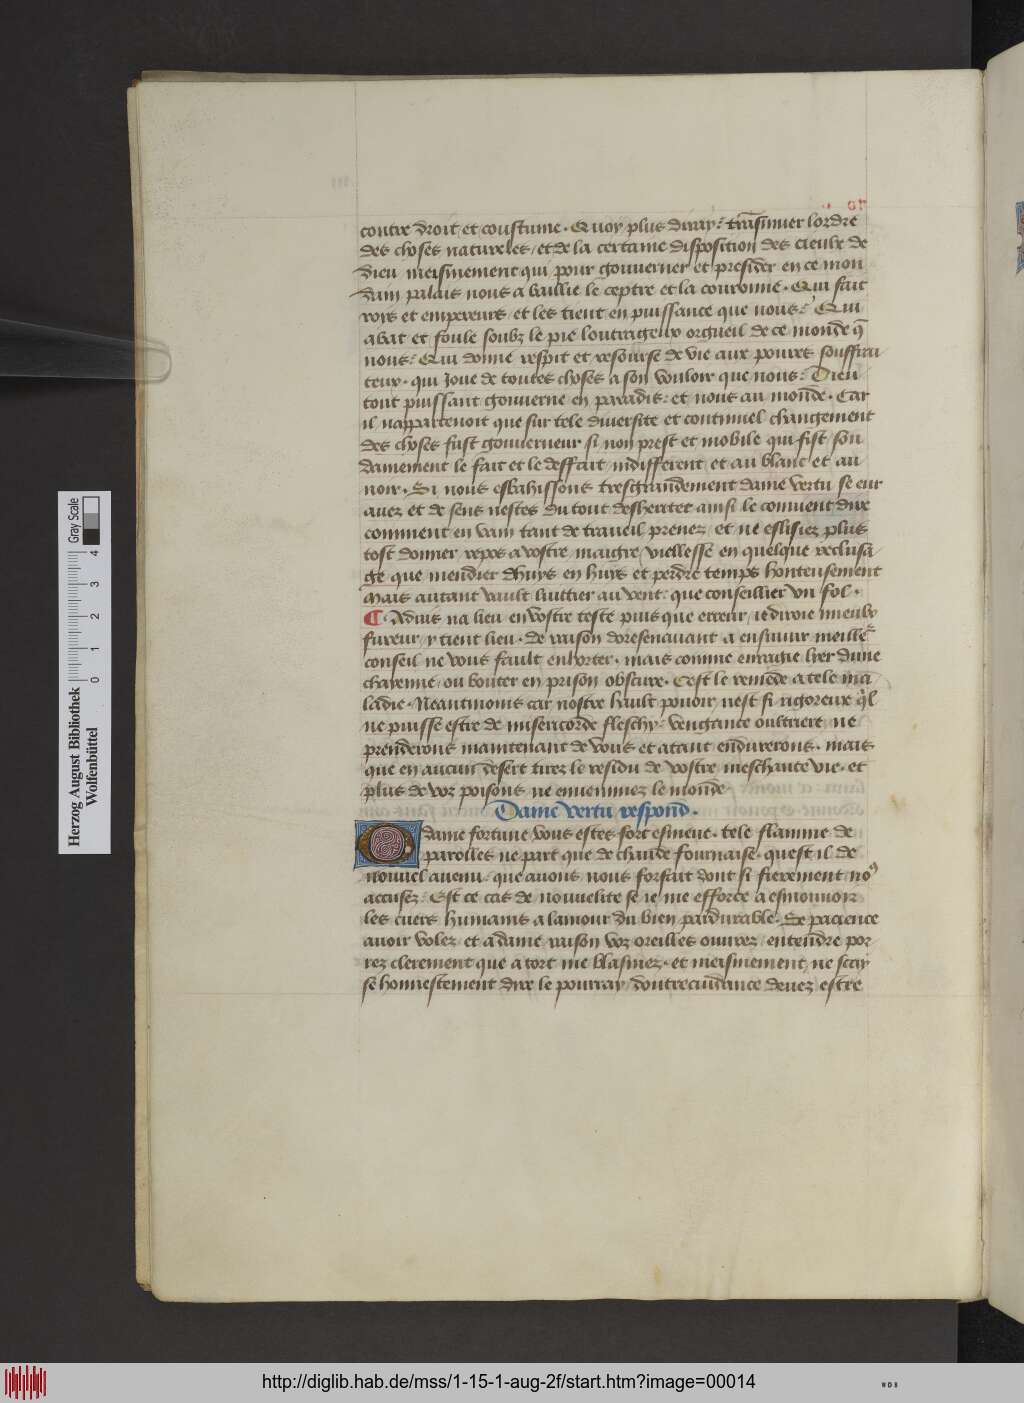 contre droit et coustume. Quoy plus diray: trāsmuer lordre
des choses natureles, et de la certaine disposition des cieulx de
dieu meismement qui pour gouuerner et presider en ce mon
dain palais nous a baillie le ceptre et la couronne. Qui fait
roys et empereurs, et les tient en puissance que nous: Qui
abat et foule soubz le pie loutrageux orgueil de ce monde q̄
nous: Qui donne respit et resourse de vie aux poures souffrai
teux. qui Joue de toutes choses a son vouloir que nous: Dieu
tout puissant gouuerne en paradis: et nous au monde. Car
il nappartenoit que sur tele diuersite et continuel changement
des choses fust gouuerneur si non prest et mobile qui fist son
damement le fait et le deffait, indifferent, et au blanc et au
noir. Si nous esbahissons tresgrandement dame vertu se eur
auez et de sens nestes du tout desheritet ainsi le conuient dire
comment en vain tant de traueil prenez, et ne eslisiez plus
tost donner repos a vostre maigre viellesse en quelque reclusa
ge que mendier dhuys en huys et perdre temps honteusement
Mais autant vault luittier au vent: que conseillier vn fol.
Aduis na lieu en vostre teste puis que erreur, ie diroie mieulx
fureur, y tient lieu. de raison doresenauant a ensuiuir meille͛
conseil ne vous fault enhorter. mais comme enragie lyer dune
chayenne, ou bouter en prison obscure. Cest le remede a tele ma
ladie. Neantmoins car nostre hault pouoir nest si rigoreux q̄l
ne puisse estre de misericorde fleschy: vengance oultriere ne
prenderons maintenant de vous et atant endurerons. mais
que en aucun desert tirez le residu de vostre meschante vie. et
plus de voz poisons ne enuenimez le monde
Dame vertu respond.
O dame fortune vous estes fort esmeue. tele flamme de
parolles ne part que de chaude fournaise. quest il de
nouuel auenu: que auons nous forfait dont si fierement noꝰ
accusez: Est ce cas de nouuelite se ie me efforce a esmouuoir
les cuers humains a lamour du bien pardurable. Se pacience
auoir volez, et a dame raison voz oreilles ouurez, entendre por
rez clerement que a tort me blasmez. et meismement ne scay
se honnestement dire le pourray, doutrecuidance deuez estre
Herzog August Bibliothek
Wolfenbüttel
0 1 2 3 4
Gray Scale
http://diglib.hab.de/mss/1-15-1-aug-2f/start.htm?image=00014